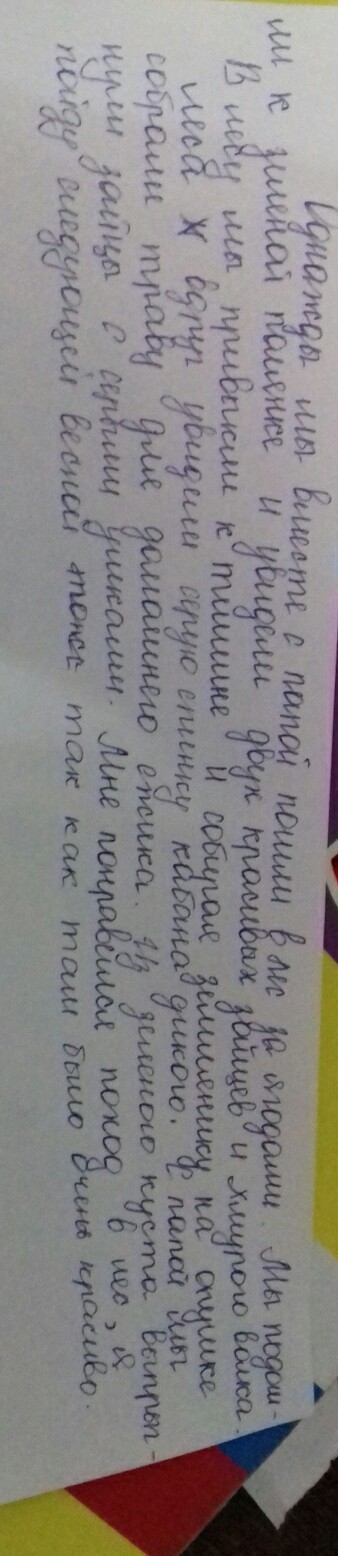 Иднажды мы вместе с папой пошли в лес за ягодами. Мы подош-
ли к зеленой полянке и увидели двух красивых зайцев и хмурого волка.
В лесу мы привыкли к тишине и собирая землянику на опушке
леса ж вдруг увидели серую спинку кабана дикого. С папой мы
собрали траву для домашнего ежика. Из зеленого куста выпрыг-
нули зайцы с серыми ушками. Мне понравился поход в лес, я
пойду следующей весной тоже так как там было очень красиво.